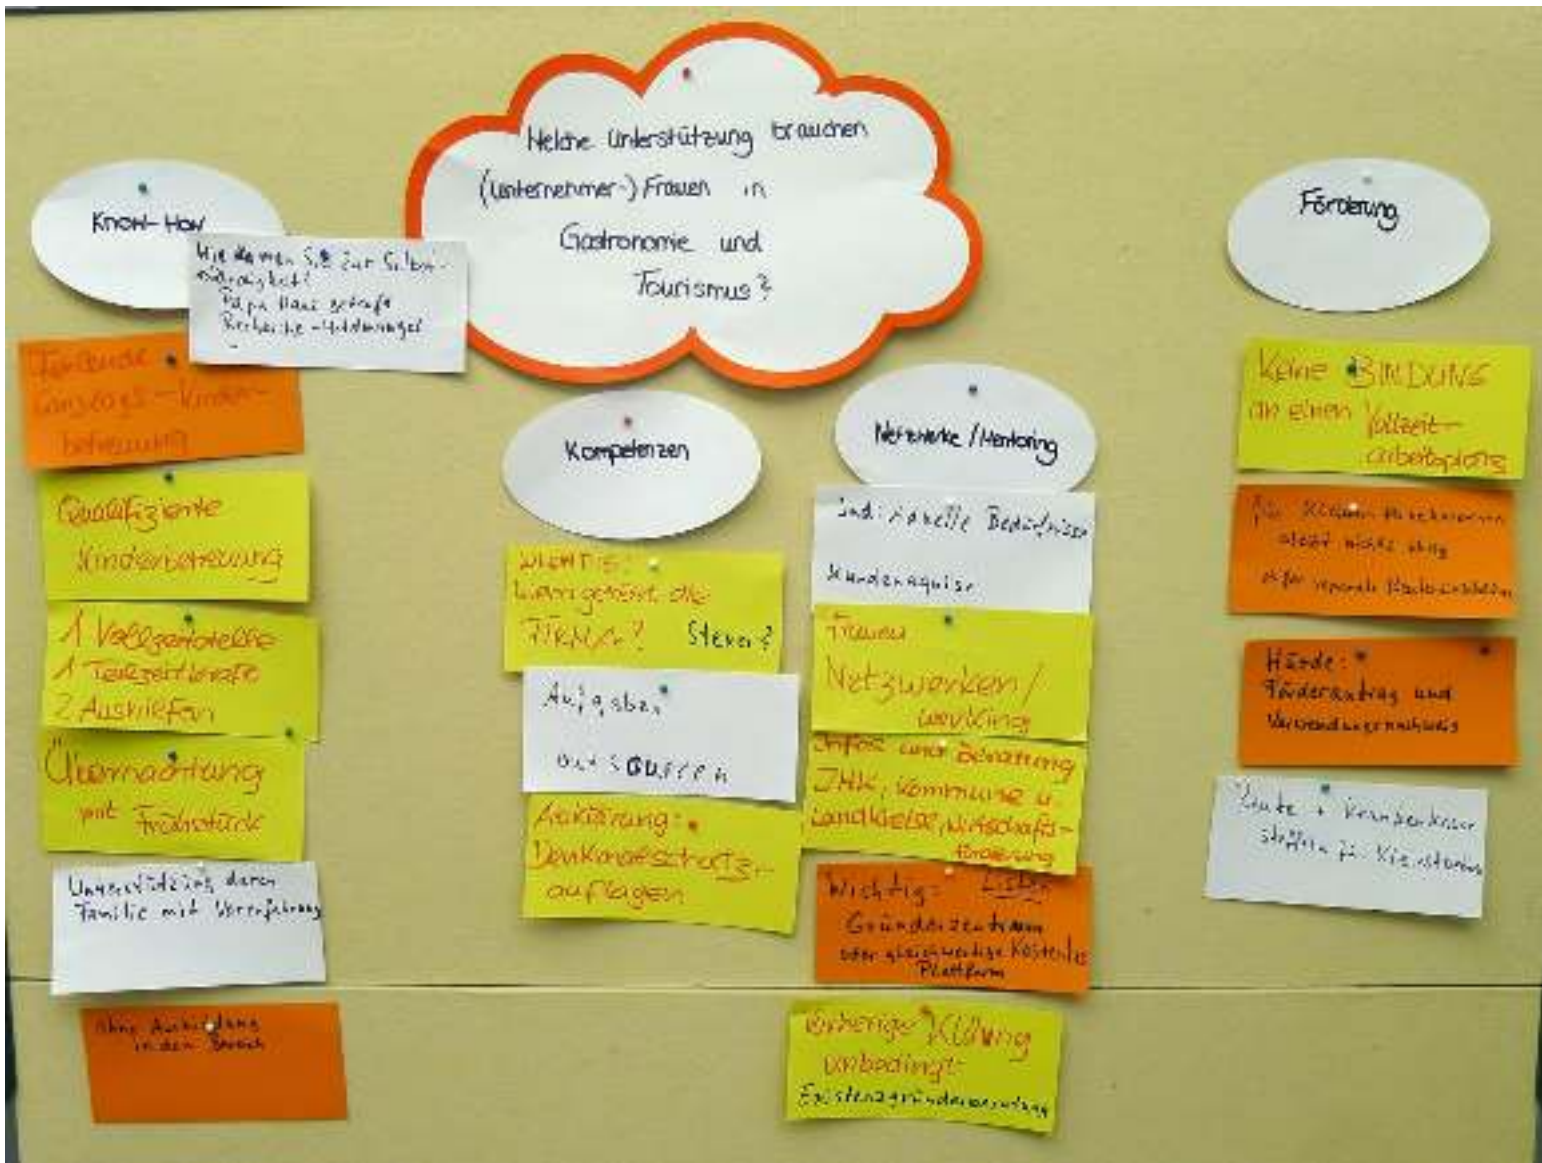 Welche Unterstützung brauchen
(Unternehmer-) Frauen in
Gastronomie und
Tourismus?
Know-How
Wie kamen Sie zur Selbst-
ständigkeit?
Papa Haus gekauft
Recherche -
Fehlende
Ganztags-Kinder-
betreuung
Qualifizierte
Kinderbetreuung
1 Vollzeitstelle
1 Teilzeitkraft
2 Aushilfen
Übernachtung
mit Frühstück
Unterstützung durch
Familie mit Vorerfahrung
ohne Ausbildung
in dem Bereich
Kompetenzen
WICHTIG:
Wem gehört die
FIRMA? Steuer?
Aufgaben
outsourcen
Aufklärung:
Denkmalschutz-
auflagen
Netzwerke/Mentoring
individuelle Bedürfnisse
Kundenaquise
Frauen
Netzwerken/
Infos und Beratung
IHK, Kommune u.
Landkreise, Wirtschafts-
förderung
Wichtig: Listen
Gründerzentrum
oder gleichwertige Kostenlos
Plattform
Vorherige Klärung
unbedingt
Existenzgründerberatung
Förderung
Keine BINDUNG
an einen Vollzeit-
arbeitsplatz
für
bleibt nichts übrig
Hürde:
Förderantrag und
Verwendungsnachweis
Rente + Krankenkasse
staffeln für